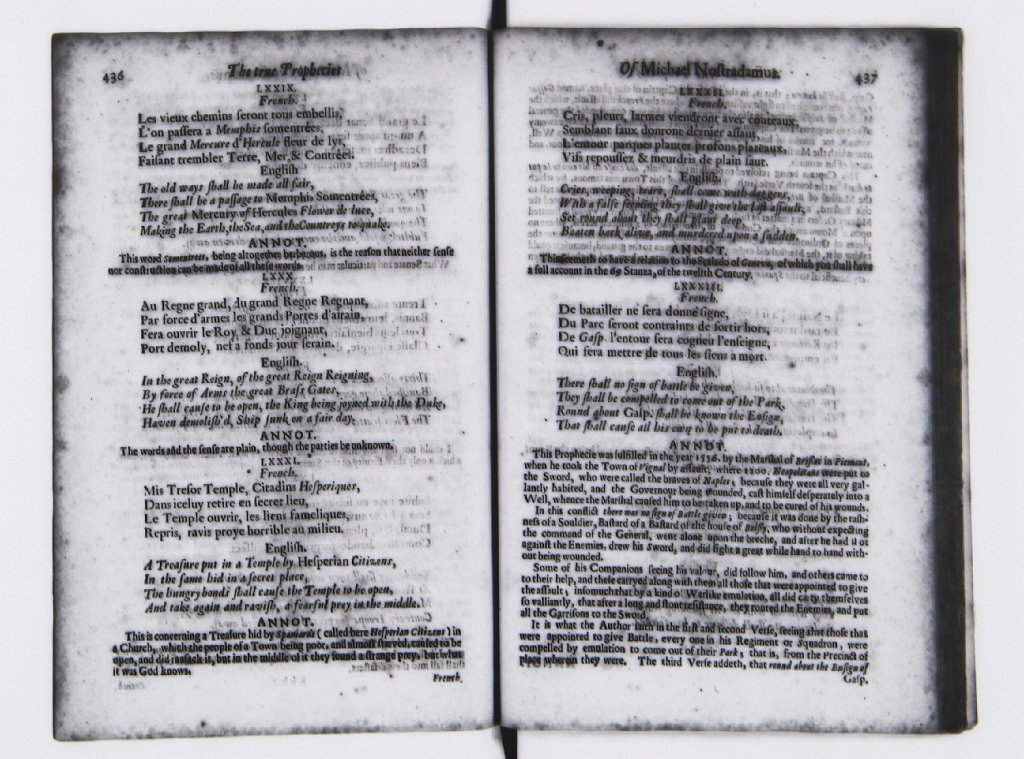 436
The true Prophecies
LXXIX.
French.
Les vieux chemins seront tous embellis,
L'on passera a Memphis somentrées,
Le grand Mercure d'Hercule fleur de lys,
Faisant trembler Terre, Mer, & Contrées.
English
The old ways shall be made all fair,
There shall be a passage to Memphis Somentrées,
The great Mercury of Hercules Flower de luce,
Making the Earth, the Sea, and the Countreys to quake.
ANNOT.
This word Somentrees, being altogether barbarous, is the reason that neither sense
nor construction can be made of all these words.
LXXX.
French.
Au Regne grand, du grand Regne Regnant,
Par force d'armes les grands Portes d'airain,
Fera ouvrir le Roy, & Duc joignant,
Port demoly, nef a fonds jour serain.
English.
In the great Reign, of the great Reign Reigning,
By force of Arms the great Brass Gates,
He shall cause to be open, the King being joyned with the Duke,
Haven demolish'd, Ship sunk on a fair day.
ANNOT.
The words and the sense are plain, though the parties be unknown.
LXXXI.
French.
Mis Tresor Temple, Citadins Hesperiques,
Dans iceluy retire en secret lieu,
Le Temple ouvrir, les liens fameliques,
Repris, ravis proye horrible au milieu.
English.
A Treasure put in a Temple by Hesperian Citizens,
In the same hid in a secret place,
The hungry bonds shall cause the Temple to be open,
And take again and ravish, a fearful prey in the middle.
ANNOT.
This is concerning a Treasure hid by Spaniards (called here Hesperian Citizens) in
a Church, which the people of a Town being poor, and almost starved, caused to be
open, and did ransack it, but in the middle of it they found a strange prey, but what
it was God knows.
French.
Of Michael Nostradamus.
437
LXXXII.
French.
Cris, pleurs, larmes viendront avec couteaux,
Semblant faux donront dernier assaut,
L'entour parques planter profons plateaux,
Vifs repoussez & meurdris de plain saut.
English.
Cries, weeping, tears, shall come with daggers,
With a false seeming they shall give the last assault,
Set round about they shall plant deep,
Beaten back alive, and murdered upon a sudden.
ANNOT.
This seemeth to have a relation to the Scalado of Geneva, of which you shall have
a full account in the 69 Stanza, of the twelfth Century.
LXXXIII.
French.
De batailler ne sera donné signe,
Du Parc seront contraints de sortir hors,
De Gasp. l'entour sera cogneu l'enseigne,
Qui sera mettre de tous les siens a mort.
English.
There shall no sign of battle be given,
They shall be compelled to come out of the Park,
Round about Gasp. shall be known the Ensign,
That shall cause all his own to be put to death.
ANNOT.
This Prophecie was fulfilled in the year 1556. by the Marshal of Brissac in Piemont,
when he took the Town of Vignal by assault, where 1200. Neapolitans were put to
the Sword, who were called the braves of Naples; because they were all very gal-
lantly habited, and the Governour being wounded, cast himself desperately into a
Well, whence the Marshal caused him to be taken up, and to be cured of his wounds.
In this conflict there was no sign of Battle given; because it was done by the rash-
ness of a Souldier, Bastard of a Bastard of the house of Boissy, who without expecting
the command of the General, went alone upon the breche, and after he had shot
against the Enemies, drew his Sword, and did fight a great while hand to hand with-
out being wounded.
Some of his Companions seeing his valour, did follow him, and others came to
to their help, and these carryed along with them all those that were appointed to give
the assault; insomuch that by a kind of Warlike emulation, all did carry themselves
so valliantly, that after a long and stout resistance, they routed the Enemies, and put
all the Garrisons to the Sword.
It is what the Author saith in the first and second Verse, seeing that those that
were appointed to give Battle, every one in his Regiment or Squadron, were
compelled by emulation to come out of their Park; that is, from the Precinct of
place wherein they were. The third Verse addeth, that round about the Ensign of
Gasp.